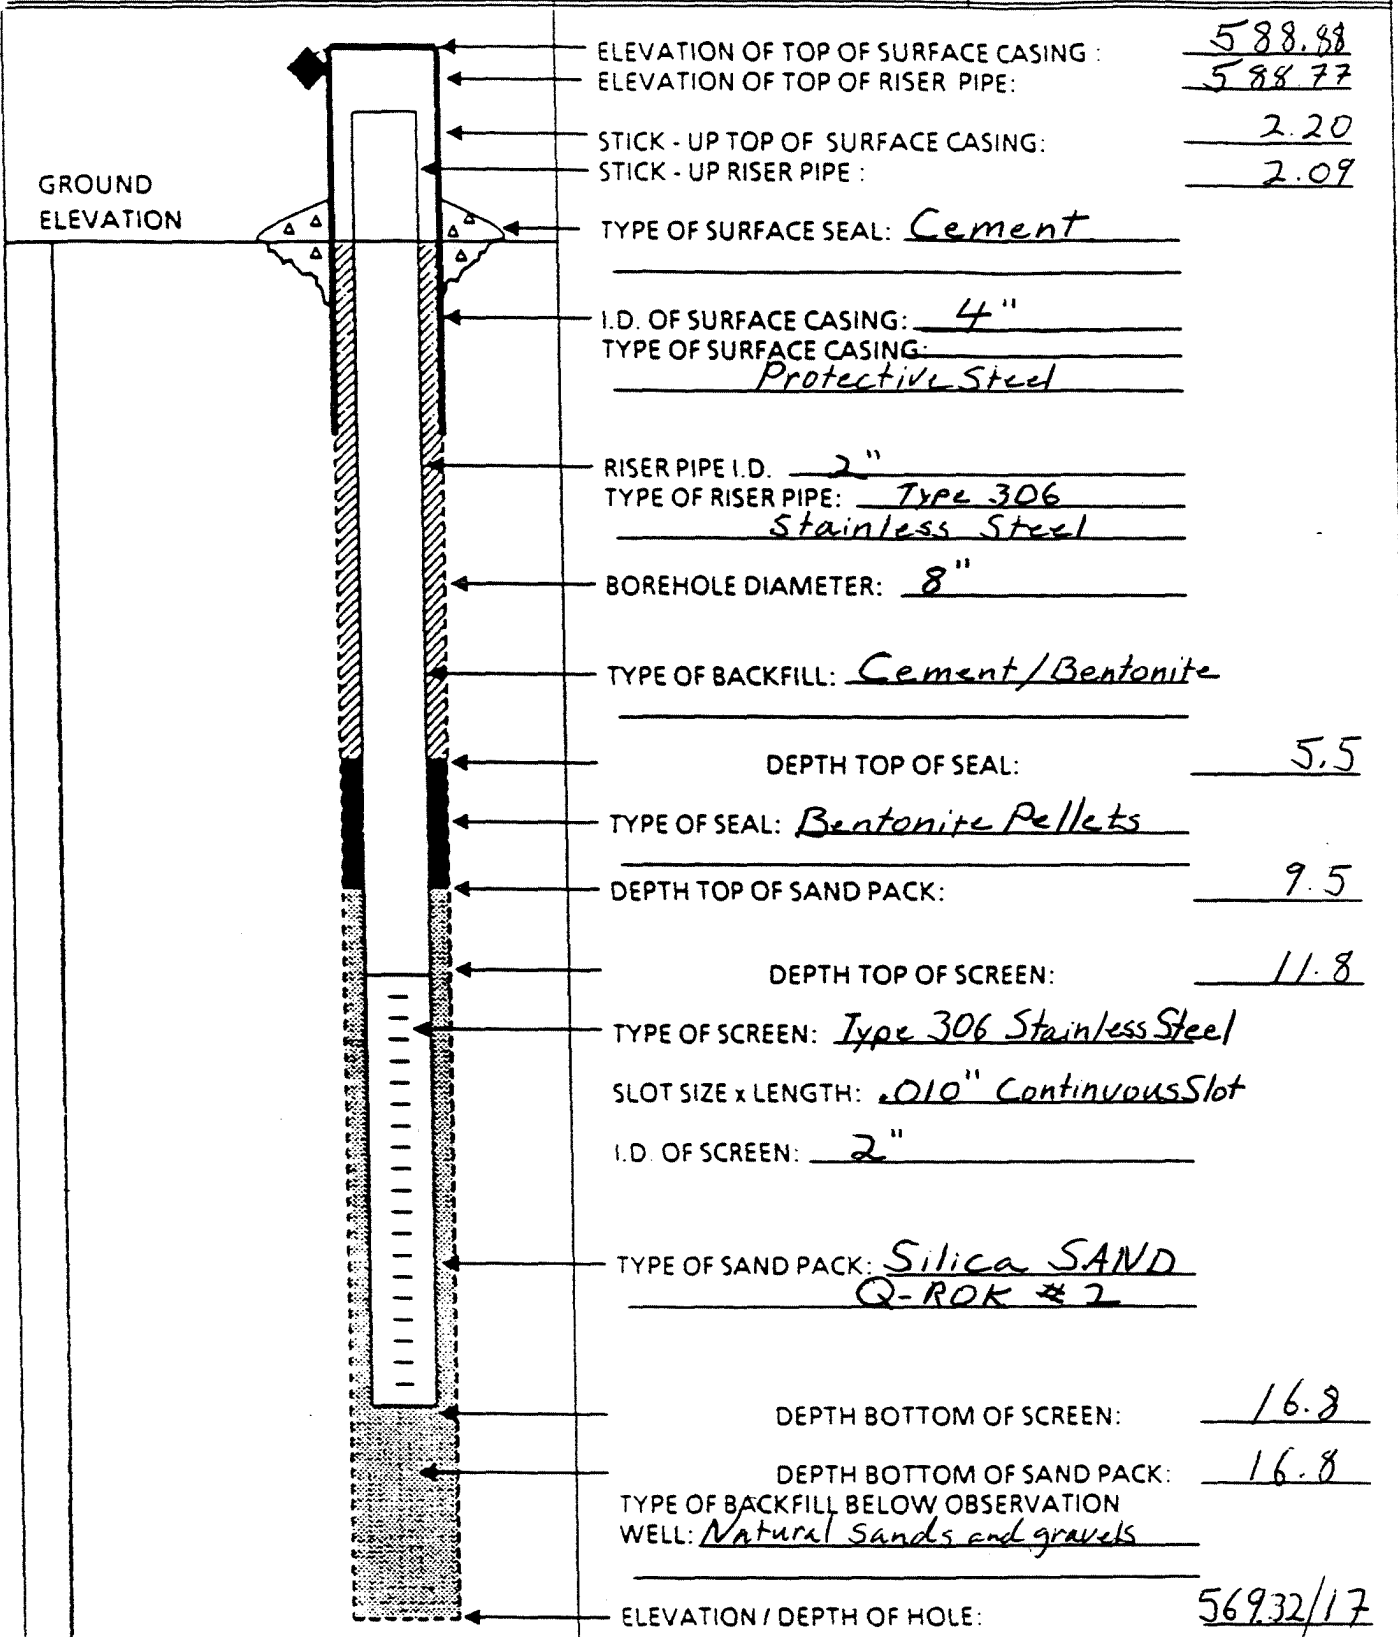 ELEVATION OF TOP OF SURFACE CASING : 588.88
ELEVATION OF TOP OF RISER PIPE: 588.77
STICK - UP TOP OF SURFACE CASING: 2.20
STICK - UP RISER PIPE : 2.09
GROUND
ELEVATION
TYPE OF SURFACE SEAL: Cement
I.D. OF SURFACE CASING: 4"
TYPE OF SURFACE CASING:
Protective Steel
RISER PIPE I.D. 2"
TYPE OF RISER PIPE: Type 306
Stainless Steel
BOREHOLE DIAMETER: 8"
TYPE OF BACKFILL: Cement/Bentonite
DEPTH TOP OF SEAL: 5.5
TYPE OF SEAL: Bentonite Pellets
DEPTH TOP OF SAND PACK: 9.5
DEPTH TOP OF SCREEN: 11.8
TYPE OF SCREEN: Type 306 Stainless Steel
SLOT SIZE x LENGTH: .010" Continuous Slot
I.D. OF SCREEN: 2"
TYPE OF SAND PACK: Silica SAND
Q-ROK # 2
DEPTH BOTTOM OF SCREEN: 16.8
DEPTH BOTTOM OF SAND PACK: 16.8
TYPE OF BACKFILL BELOW OBSERVATION
WELL: Natural Sands and gravels
ELEVATION / DEPTH OF HOLE: 569.32/17